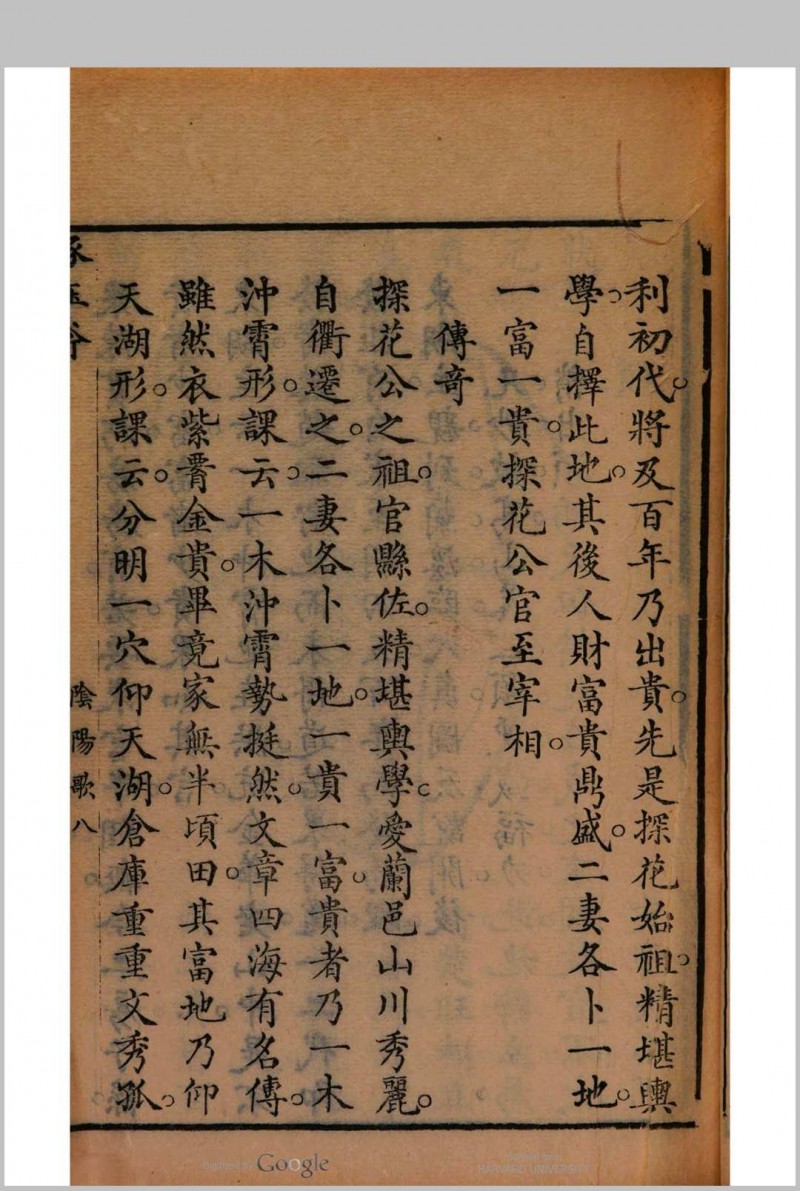 利初代。將及百年乃出貴。先是探花始祖。精堪輿
學。自擇此地。其後人財富貴鼎盛。二妻各卜一地。
一富一貴。探花公官至宰相。
傳奇
探花公之祖。官縣佐。精堪輿學。愛蘭邑山川秀麗。
自衢遷之。二妻各卜一地。一貴一富。貴者乃一木
沖霄形。課云。一木沖霄勢挺然。文章四海有名傳。
雖然衣紫腰金貴。畢竟家無半頃田。其富地乃仰
天湖形。課云。分明一穴仰天湖。倉庫重重文秀孤。
陰陽歌 八
Google
HARVARD UNIVERSITY